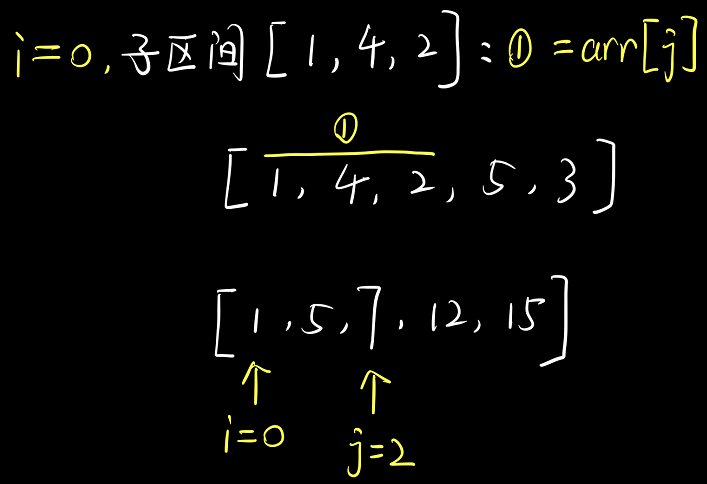 i=0, 子区间 [1, 4, 2] : ① = arr[j]
①
[1, 4, 2, 5, 3]
[1, 5, 7, 12, 15]
↑ ↑
i=0 j=2